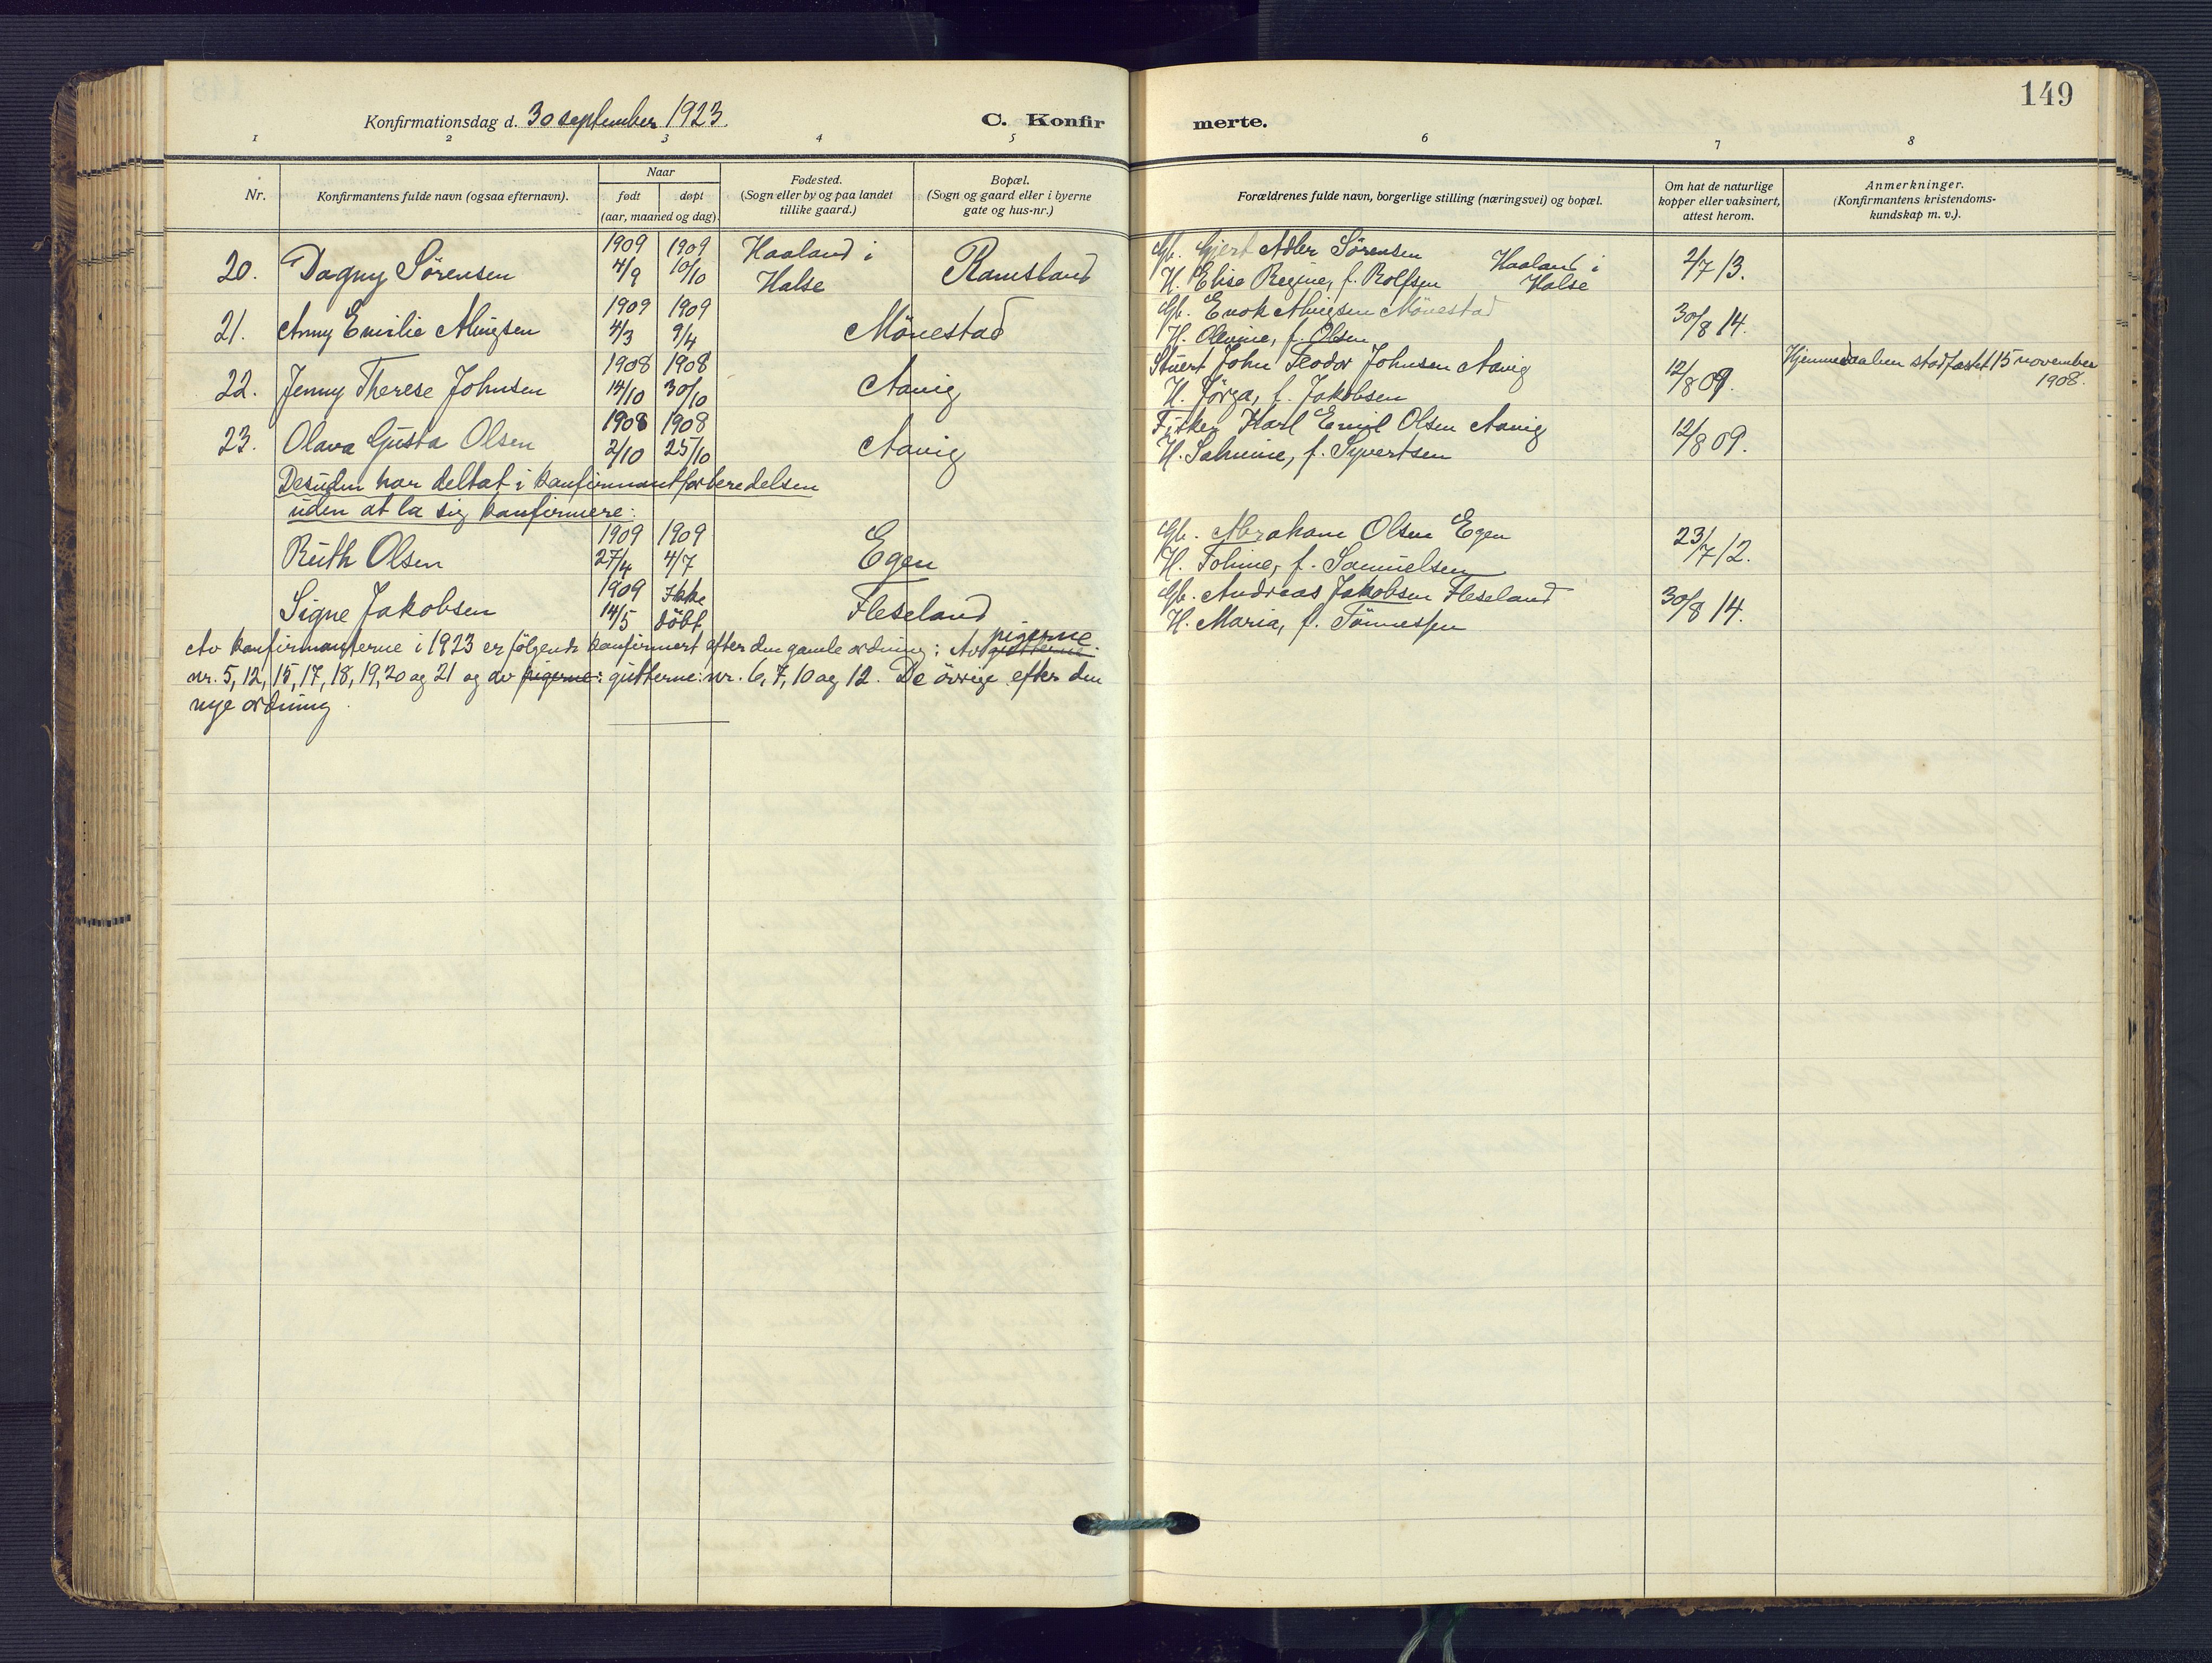 149
Konfirmationsdag d. 30 september 1923.
C. Konfirmerte.
1 2 3 4 5 6 7 8
Nr.
Konfirmantens fulde navn (ogsaa efternavn).
Naar
født døpt
(aar, maaned og dag).
Fødested.
(Sogn eller by og paa landet
tillike gaard.)
Bopæl.
(Sogn og gaard eller i byerne
gate og hus-nr.)
Forældrenes fulde navn, borgerlige stilling (næringsvei) og bopæl.
Om hat de naturlige
kopper eller vaksinert,
attest herom.
Anmerkninger.
(Konfirmantens kristendoms-
kundskap m. v.).
20. Dagny Sørensen 1909 4/9 1909 10/10 Haaland i Halse Ramsland
Gb. Gjert Adler Sørensen Haaland i
H. Elise Regine, f. Rolfsen Halse
2/7 13.
21. Anny Emilie Alingsen 1909 4/3 1909 9/4 Mönestad
Gb. Enok Alingsen Mönestad
H. Olevine, f. Olsen
30/8 14.
22. Jenny Therese Johnsen 1908 14/10 1908 30/10 Aavig
Stuert John Teodor Johnsen Aavig
H. Jörga, f. Jakobsen
12/8 09.
Hjemmedaaben stadfæstet 15 november
1908.
23. Olava Gusta Olsen 1908 2/10 1908 25/10 Aavig
Fisker Karl Emil Olsen Aavig
H. Salmine, f. Syvertsen
12/8 09.
Desuden har deltat i konfirmantforberedelsen
uden at la sig konfirmere:
Ruth Olsen 1909 27/4 1909 4/7 Egen
Gb. Abraham Olsen Egen
H. Tomine, f. Samuelsen
23/7 12.
Signe Jakobsen 1909 14/5 Ikke döbt Fleseland
Gb. Andreas Jakobsen Fleseland
H. Maria, f. Tönnessen
30/8 14.
Av konfirmanterne i 1923 er følgende konfirmert efter den gamle ordning: Av gutterne pigerne
nr. 5, 12, 15, 17, 18, 19, 20 og 21 og av pigerne: gutterne: nr. 6, 7, 10 og 12. De övrige efter den
nye ordning.